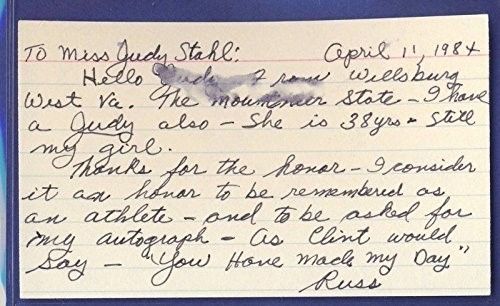 To Miss Judy Stahl: April 11, 1984
Hello Judy From Wellsburg
West Va. The mountnier State - I have
a Judy also - She is 38yrs - Still
my girl.
Thanks for the honor - I consider
it an honor to be remembered as
an athlete - and to be asked for
my autograph - as Clint would
Say - "You Have made my Day"
Russ